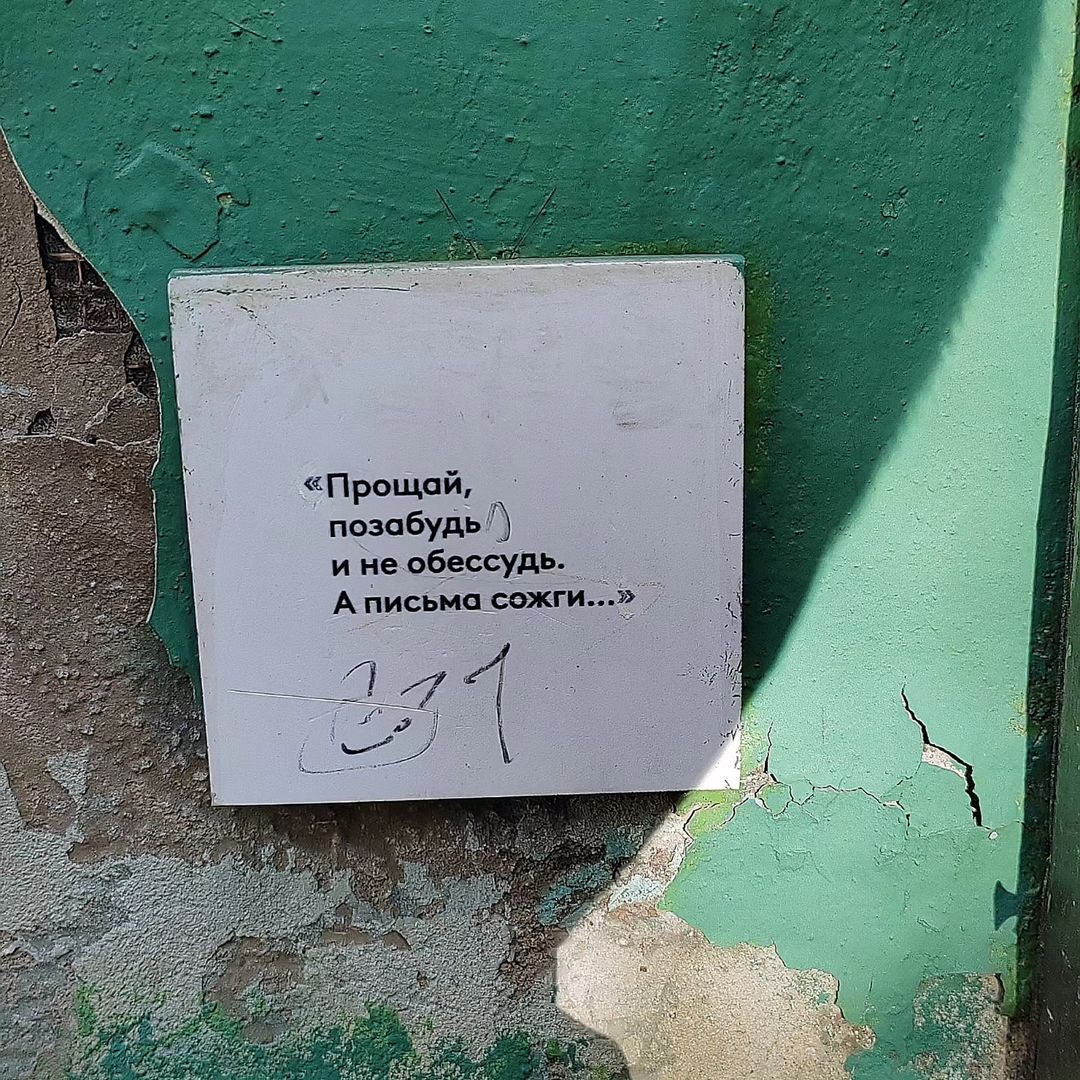 «Прощай,
позабудь
и не обессудь.
А письма сожги...»